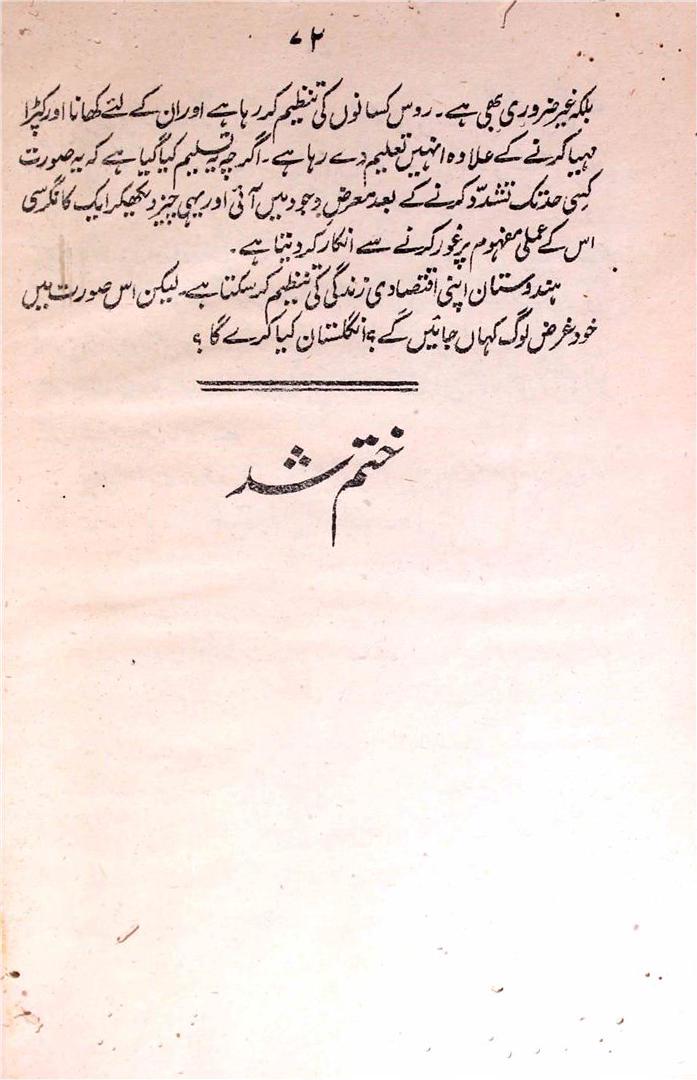 ۷۲
بلکہ غیر ضروری بھی ہے۔ روس کسانوں کی تنظیم کر رہا ہے اور ان کے لئے کھانا اور کپڑا
مہیا کرنے کے علاوہ انہیں تعلیم دے رہا ہے۔ اگرچہ یہ تسلیم کیا گیا ہے کہ یہ صورت
کسی حد تک تشدّد کرنے کے بعد معرضِ وجود میں آئی اور یہی چیز دیکھکر ایک کانگرسی
اس کے عملی مفہوم پر غور کرنے سے انکار کر دیتا ہے۔
ہندوستان اپنی اقتصادی زندگی کی تنظیم کر سکتا ہے۔ لیکن اس صورت میں
خود غرض لوگ کہاں جائیں گے؟ انگلستان کیا کرے گا؟
ختم شد